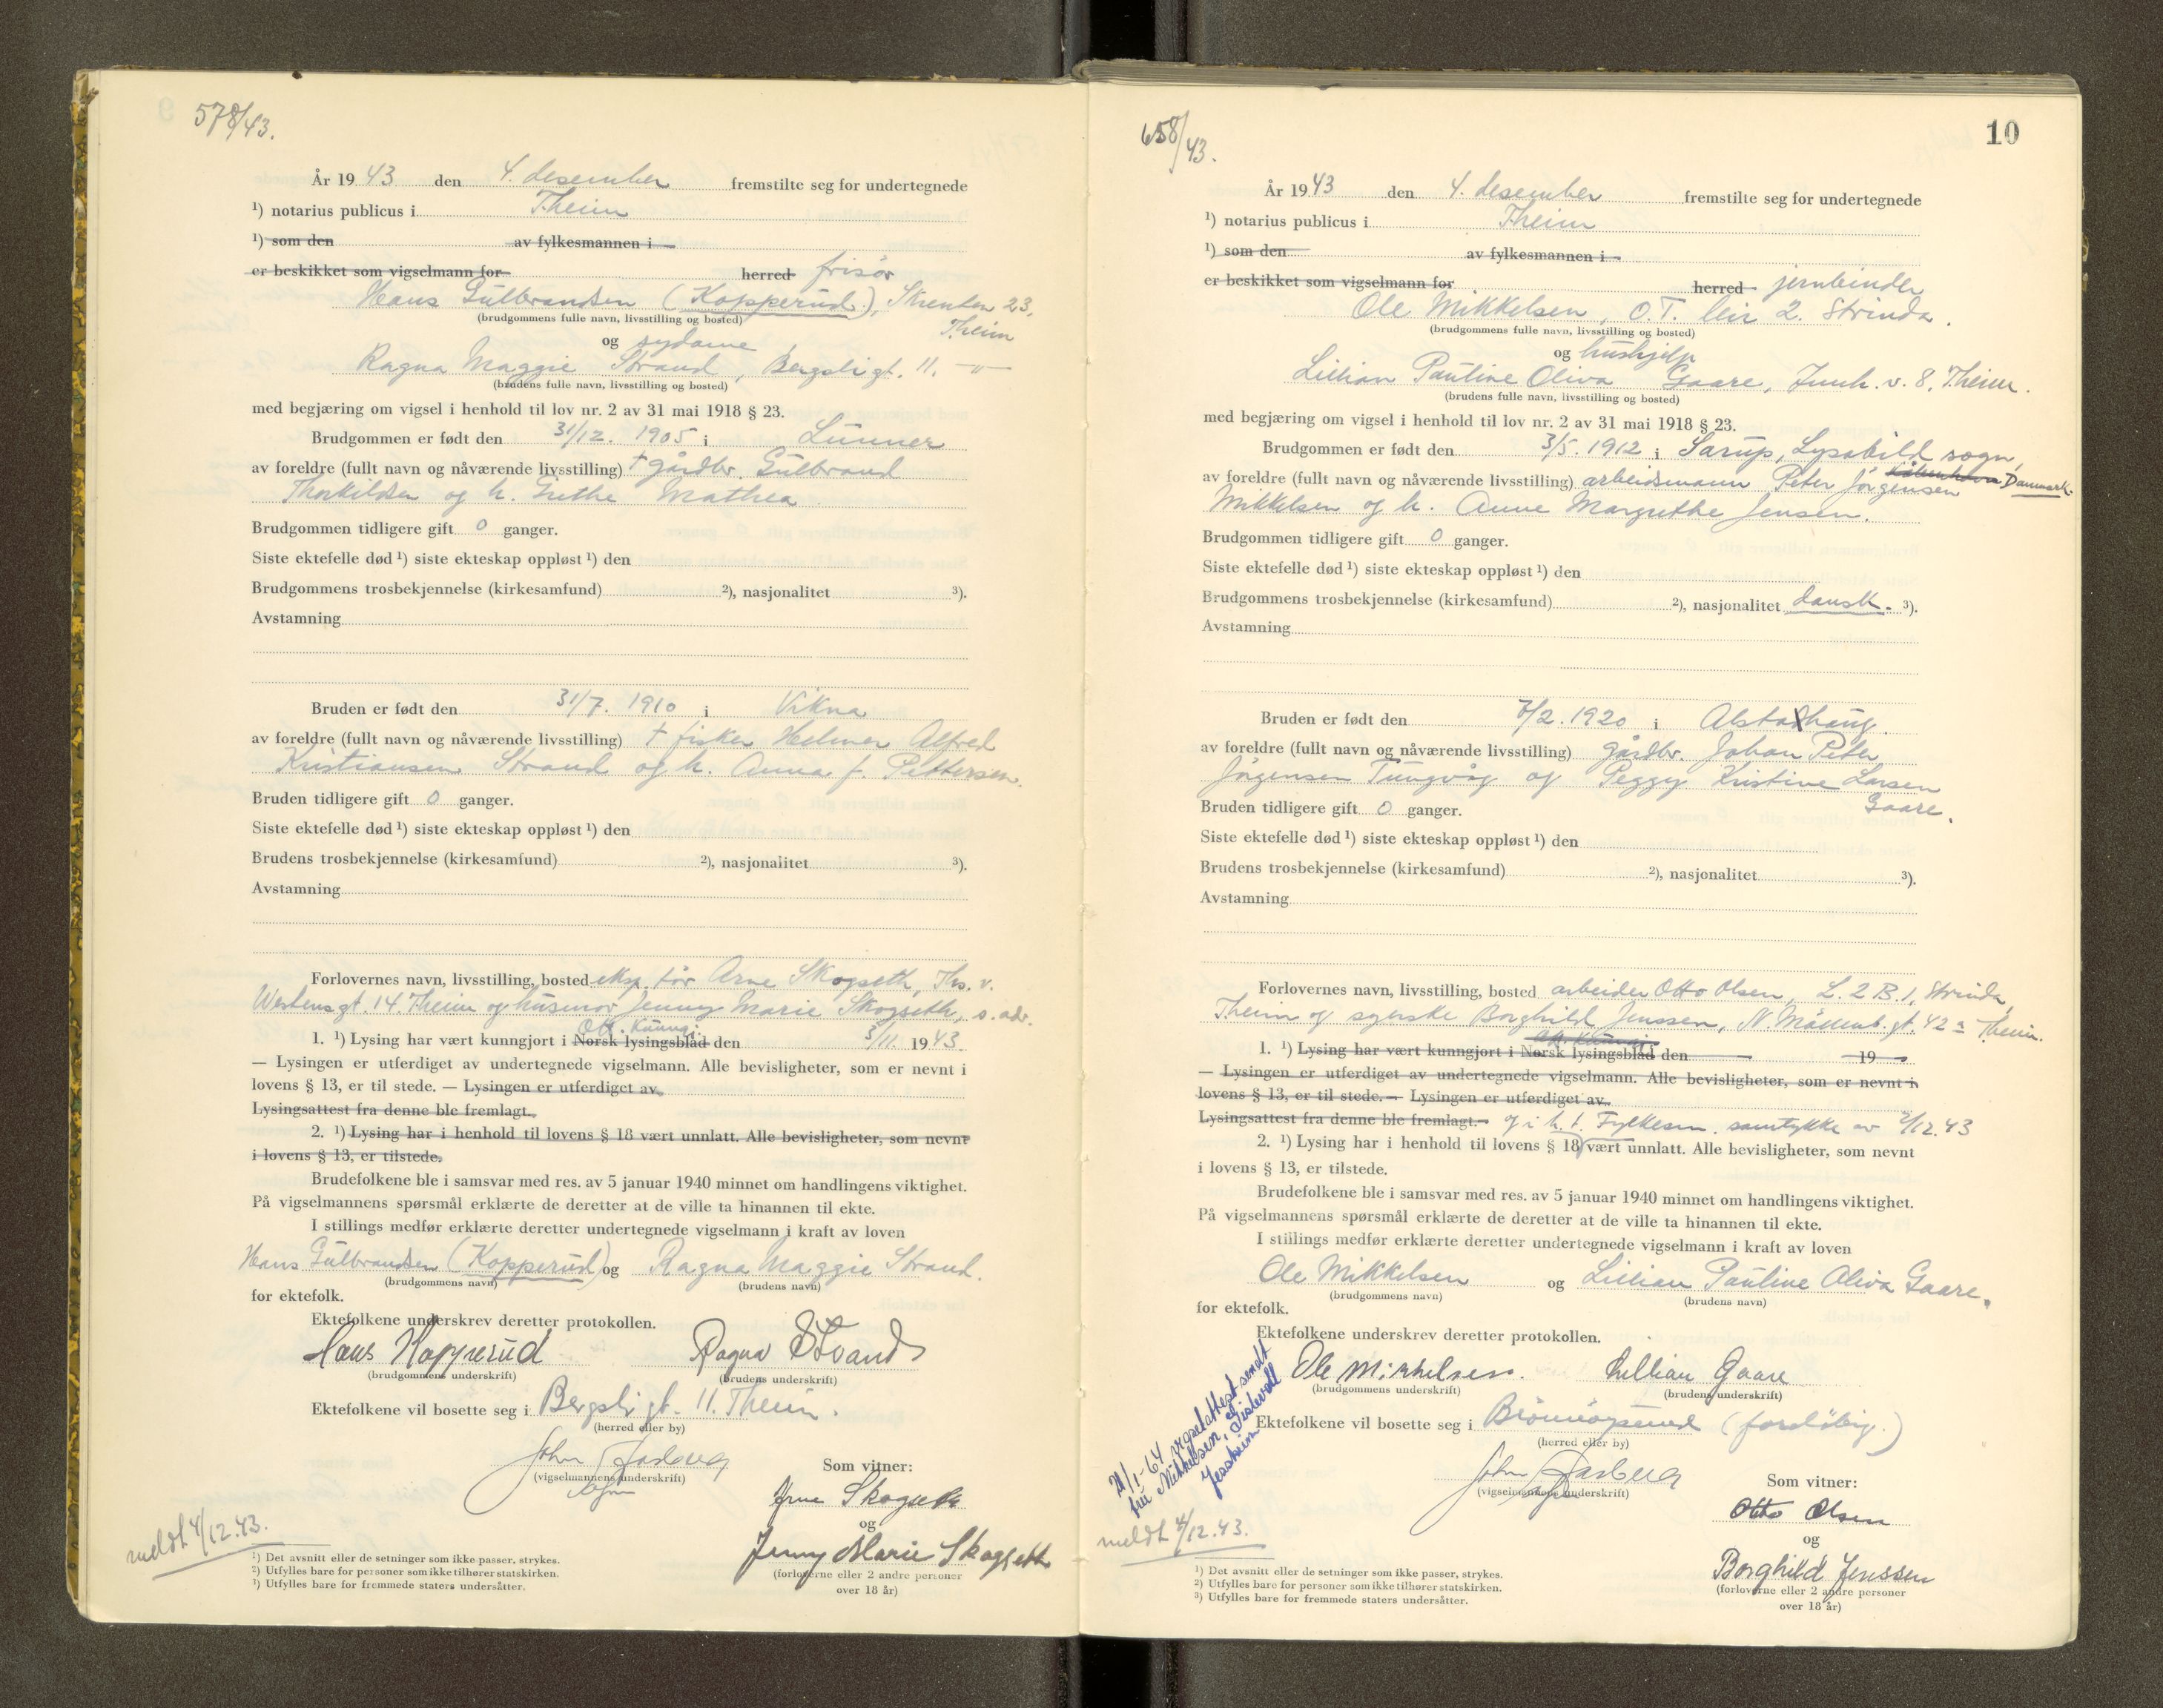 578/43.
År 1943 den 4. desember fremstilte seg for undertegnede
¹) notarius publicus i T.heim
¹) som den av fylkesmannen i
er beskikket som vigselmann for herred frisør
Hans Gulbrandsen (Kopperud), Skrenten 23,
(brudgommens fulle navn, livsstilling og bosted) T.heim
og sydame
Ragna Maggie Strand, Bergsligt. 11. -"-
(brudens fulle navn, livsstilling og bosted)
med begjæring om vigsel i henhold til lov nr. 2 av 31 mai 1918 § 23.
Brudgommen er født den 31/12. 1905 i Lunner
av foreldre (fullt navn og nåværende livsstilling) † gårdbr. Gulbrand
Thorkildsen og h. Grethe Mathea
Brudgommen tidligere gift 0 ganger.
Siste ektefelle død ¹) siste ekteskap oppløst ¹) den
Brudgommens trosbekjennelse (kirkesamfund) ²), nasjonalitet ³).
Avstamning
Bruden er født den 31/7. 1910 i Vikna
av foreldre (fullt navn og nåværende livsstilling) † fisker Helmer Alfred
Kristiansen Strand og h. Anna f. Pettersen.
Bruden tidligere gift 0 ganger.
Siste ektefelle død ¹) siste ekteskap oppløst ¹) den
Brudens trosbekjennelse (kirkesamfund) ²), nasjonalitet ³).
Avstamning
Forlovernes navn, livsstilling, bosted eksp.tør Arne Skogseth, Ths. v.
Westensgt. 14. T.heim og husmor Jenny Marie Skogseth, s. adr.
Off. Kunngj.
1. ¹) Lysing har vært kunngjort i Norsk lysingsblad den 3/11. 1943.
— Lysingen er utferdiget av undertegnede vigselmann. Alle bevisligheter, som er nevnt i
lovens § 13, er til stede. — Lysingen er utferdiget av
Lysingsattest fra denne ble fremlagt.
2. ¹) Lysing har i henhold til lovens § 18 vært unnlatt. Alle bevisligheter, som nevnt
i lovens § 13, er tilstede.
Brudefolkene ble i samsvar med res. av 5 januar 1940 minnet om handlingens viktighet.
På vigselmannens spørsmål erklærte de deretter at de ville ta hinannen til ekte.
I stillings medfør erklærte deretter undertegnede vigselmann i kraft av loven
Hans Gulbrandsen (Kopperud) og Ragna Maggie Strand.
(brudgommens navn) (brudens navn)
for ektefolk.
Ektefolkene underskrev deretter protokollen.
Hans Kopperud Ragna Strand
(brudgommens underskrift) (brudens underskrift)
Ektefolkene vil bosette seg i Bergsligt. 11. T.heim.
(herred eller by)
John Aasberg
(vigselmannens underskrift)
Som vitner:
Arne Skogseth
og
Jenny Marie Skogseth
(forloverne eller 2 andre personer
over 18 år)
meldt 4/12.43.
¹) Det avsnitt eller de setninger som ikke passer, strykes.
²) Utfylles bare for personer som ikke tilhører statskirken.
³) Utfylles bare for fremmede staters undersåtter.
658/43.
10
År 1943 den 4. desember fremstilte seg for undertegnede
¹) notarius publicus i T.heim
¹) som den av fylkesmannen i
er beskikket som vigselmann for herred jernbinder
Ole Mikkelsen, O.T. leir 2. Strinda.
(brudgommens fulle navn, livsstilling og bosted)
og hushjelp
Lillian Pauline Oliva Gaare, Innh. v. 8, T.heim.
(brudens fulle navn, livsstilling og bosted)
med begjæring om vigsel i henhold til lov nr. 2 av 31 mai 1918 § 23.
Brudgommen er født den 3/5. 1912 i Sarup, Lysabild sogn,
Danmark.
av foreldre (fullt navn og nåværende livsstilling) arbeidsmann Peter Jørgensen
Mikkelsen og h. Anne Margrethe Jensen.
Brudgommen tidligere gift 0 ganger.
Siste ektefelle død ¹) siste ekteskap oppløst ¹) den
Brudgommens trosbekjennelse (kirkesamfund) ²), nasjonalitet dansk. ³).
Avstamning
Bruden er født den 7/2. 1920 i Alstahaug.
av foreldre (fullt navn og nåværende livsstilling) gårdbr. Johan Peter
Jørgensen Tungvåg og Peggy Kristine Larsen
Gaare.
Bruden tidligere gift 0 ganger.
Siste ektefelle død ¹) siste ekteskap oppløst ¹) den
Brudens trosbekjennelse (kirkesamfund) ²), nasjonalitet ³).
Avstamning
Forlovernes navn, livsstilling, bosted arbeider Otto Olsen, L. 2 B. 1, Strinda,
T.heim og syerske Borghild Jenssen, N. Møllenb.gt. 42 a T.heim.
Off. Kunngj.
1. ¹) Lysing har vært kunngjort i Norsk lysingsblad den 19
— Lysingen er utferdiget av undertegnede vigselmann. Alle bevisligheter, som er nevnt i
lovens § 13, er til stede. — Lysingen er utferdiget av
Lysingsattest fra denne ble fremlagt. og i h. t. Fylkesm. samtykke av /12.43
2. ¹) Lysing har i henhold til lovens § 18 vært unnlatt. Alle bevisligheter, som nevnt
i lovens § 13, er tilstede.
Brudefolkene ble i samsvar med res. av 5 januar 1940 minnet om handlingens viktighet.
På vigselmannens spørsmål erklærte de deretter at de ville ta hinannen til ekte.
I stillings medfør erklærte deretter undertegnede vigselmann i kraft av loven
Ole Mikkelsen og Lillian Pauline Oliva Gaare.
(brudgommens navn) (brudens navn)
for ektefolk.
Ektefolkene underskrev deretter protokollen.
Ole Mikkelsen. Lillian Gaare
(brudgommens underskrift) (brudens underskrift)
Ektefolkene vil bosette seg i Brønnøysund (foreløbig.)
(herred eller by)
John Aasberg
(vigselmannens underskrift)
Som vitner:
Otto Olsen
og
Borghild Jenssen
(forloverne eller 2 andre personer
over 18 år)
21/1-64 vigselattest sendt
fru Mikkelsen,
Jessheim
meldt 4/12.43.
¹) Det avsnitt eller de setninger som ikke passer, strykes.
²) Utfylles bare for personer som ikke tilhører statskirken.
³) Utfylles bare for fremmede staters undersåtter.